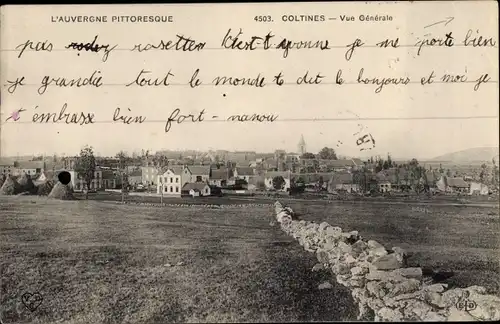 L'AUVERGNE PITTORESQUE
4503. COLTINES - Vue Générale
pas rosette yvonne je me porte bien
je grandie tout le monde te dit le bonjours et moi je
t embrasse bien fort - nanou
ELD